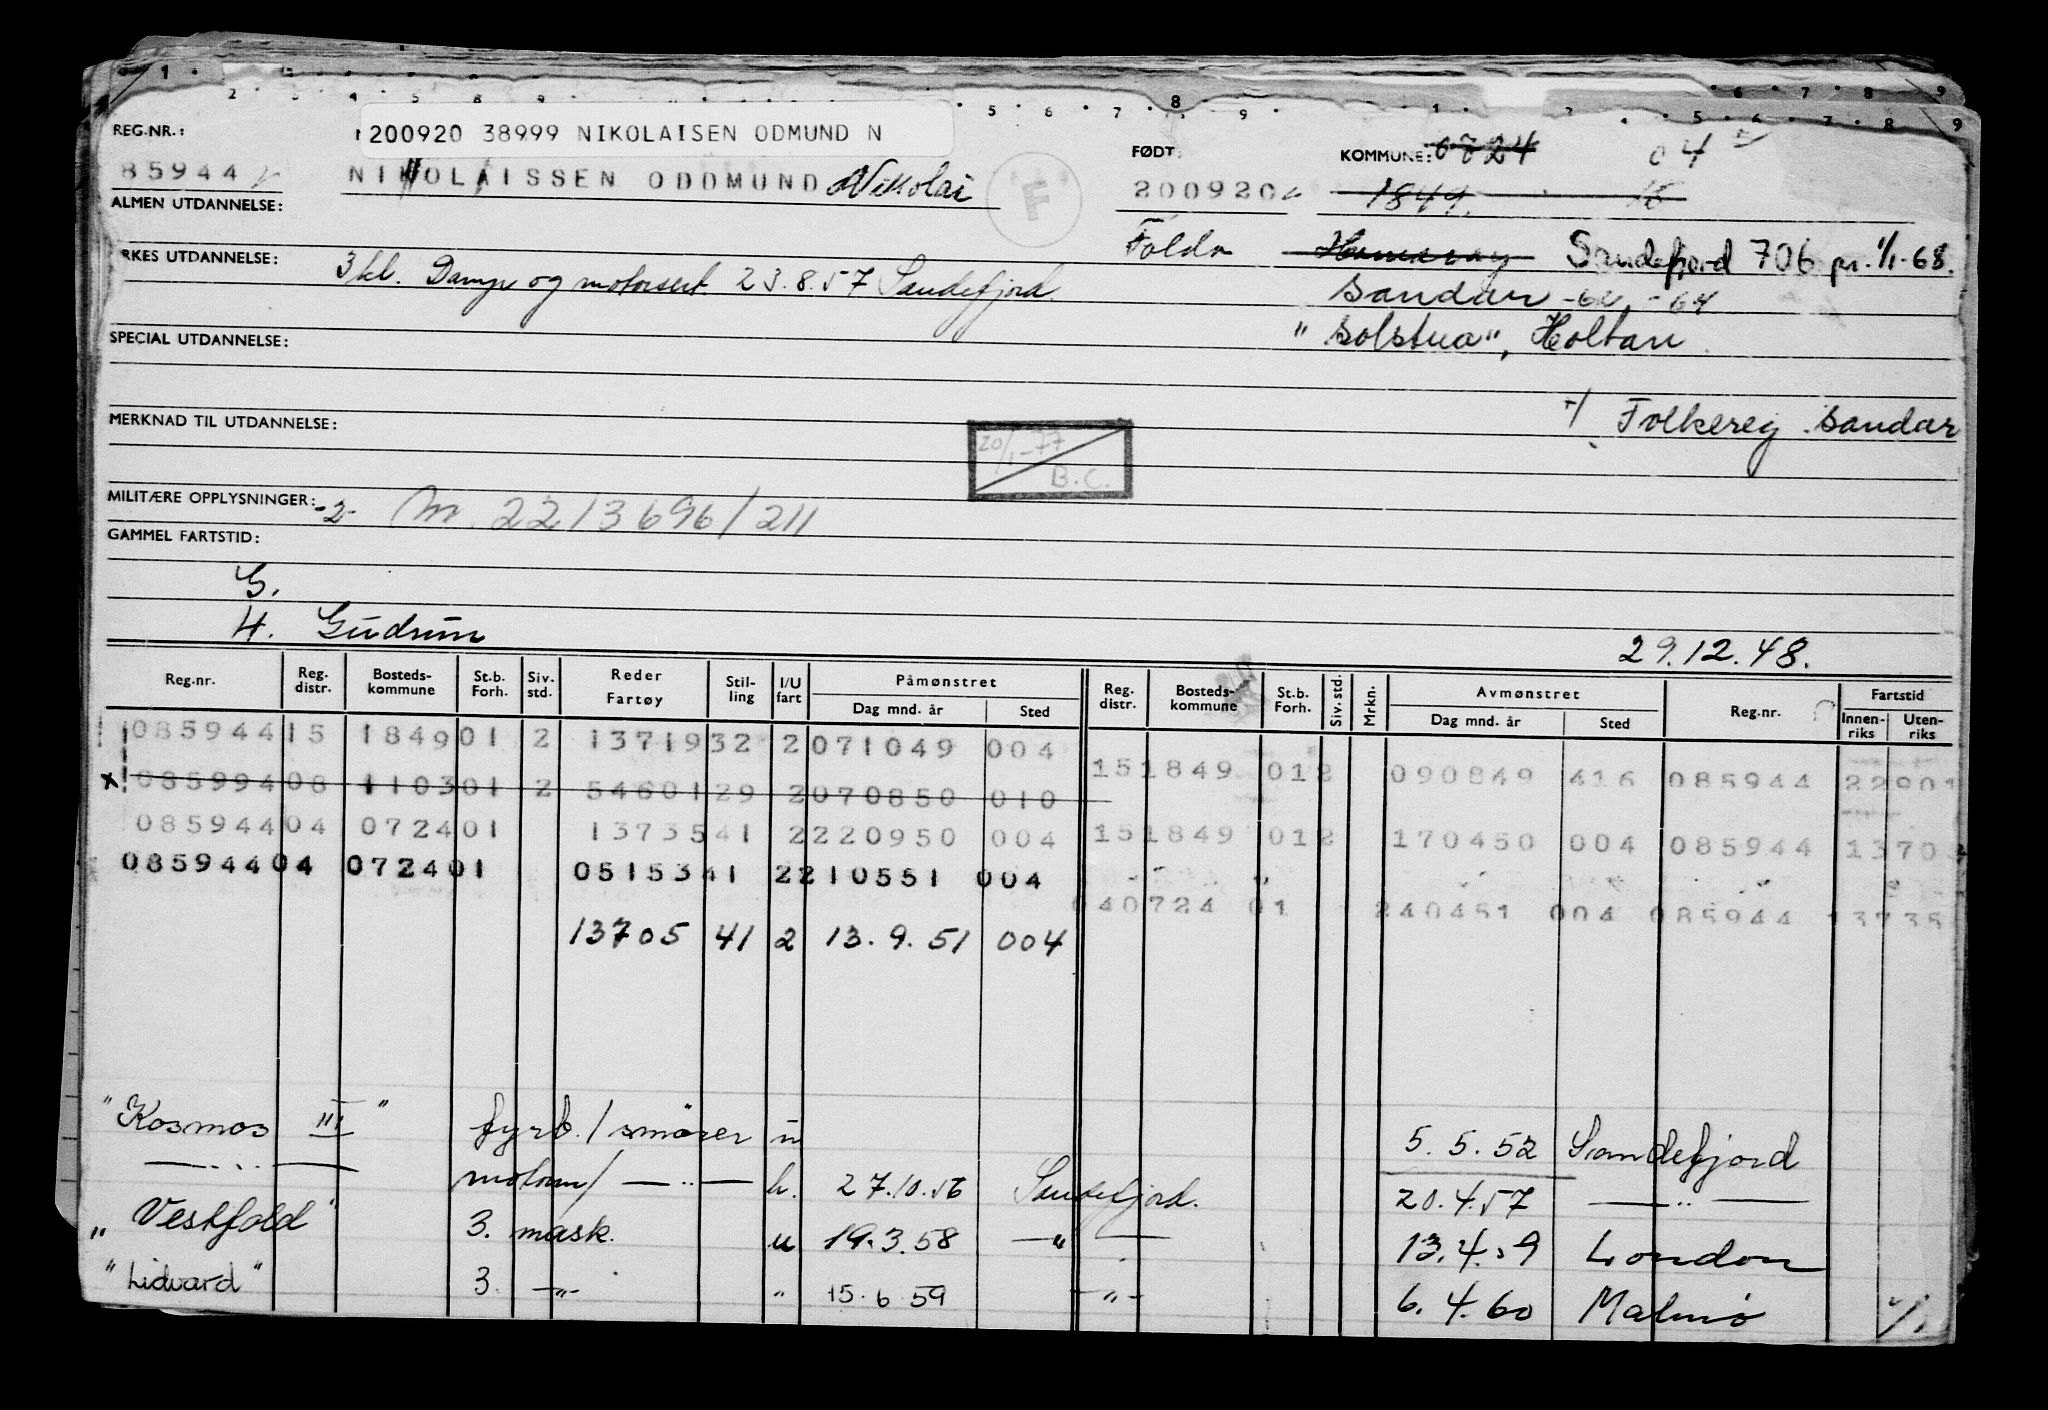 200920 38999 NIKOLAISEN ODMUND N
REG.NR.: FØDT: KOMMUNE: 0724 04
85944 NIKOLAISSEN ODDMUND Nikolai 200920 1849 15
ALMEN UTDANNELSE: Folda Hamarøy Sandefjord 706 pr. 1/1-68.
YRKES UTDANNELSE: 3 kl. Damp og motorsert. 23.8.57 Sandefjord. Sandar -62 -64
SPECIAL UTDANNELSE: "Solstua", Holtan
MERKNAD TIL UTDANNELSE: Folkereg. Sandar
20/1-77
B.C.
MILITÆRE OPPLYSNINGER: -2- M. 2213696/211
GAMMEL FARTSTID:
G.
H. Gudrun 29.12.48.
Reg.nr. Reg. distr. Bosteds-kommune St.b. Forh. Siv. std. Reder Fartøy Stil-ling I/U fart Påmønstret Dag mnd. år Sted Reg. distr. Bosteds-kommune St.b. Forh. Siv. std. Mrkn. Avmønstret Dag mnd. år Sted Reg.nr. Fartstid Innen-riks Uten-riks
085944 15 1849 01 2 13719 32 2 071049 004
15 1849 01 2 090849 416 085944 22901
x 085994 08 1103 01 2 54601 29 2 070850 010
085944 04 0724 01 13735 41 2 220950 004
15 1849 01 2 170450 004 085944 1370
085944 04 0724 01 05153 41 2 210551 004
04 0724 01 240451 004 085944 13735
13705 41 2 13.9.51 004
"Kosmos III" fyrb./smører u 5.5.52 Sandefjord
— " — motorm/ — " — h. 27.10.56 Sandefjord. 20.4.57 — " —
"Vestfold" 3. mask. u 19.3.58 — " — 13.4.59 London
"Lidvard" 3. — " — " 15.6.59 — " — 6.4.60 Malmö